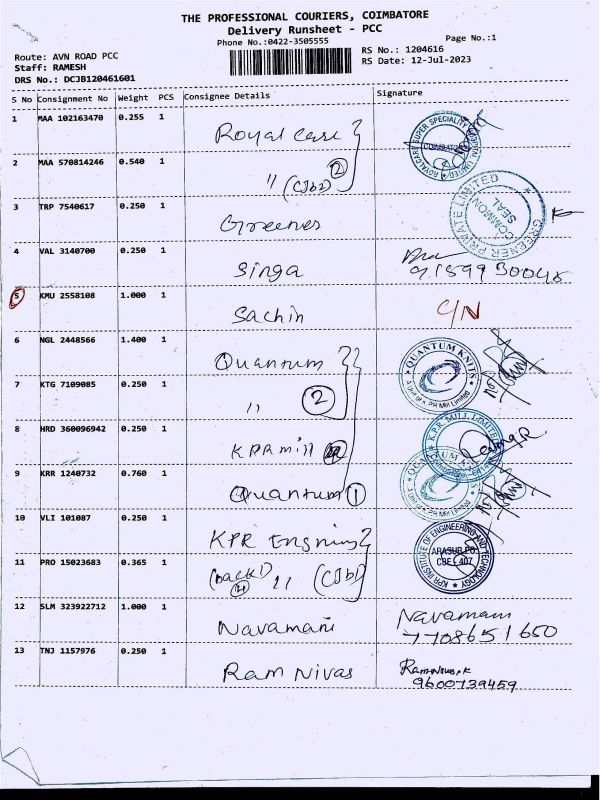 THE PROFESSIONAL COURIERS, COIMBATORE
Delivery Runsheet - PCC
Phone No.:0422-3505555
Page No.:1
Route: AVN ROAD PCC
RS No.: 1204616
Staff: RAMESH
RS Date: 12-Jul-2023
DRS No.: DCJB120461601
S No Consignment No Weight PCS Consignee Details Signature
1 MAA 102163470 0.255 1 Royal Care
2 MAA 570814246 0.540 1 " (CJb2) 2
3 TRP 7540617 0.250 1 Greener
4 VAL 3140700 0.250 1 Singa
5 KMU 2558108 1.000 1 Sachin C/N
6 NGL 2448566 1.400 1 Quantum QUANTUM KNITS
7 KTG 7109085 0.250 1 " 2
8 HRD 360096942 0.250 1 KPR mill K.P.R. MILL LIMITED
9 KRR 1240732 0.760 1 Quantum 1
10 VLI 101087 0.250 1 KPR KPR INSTITUTE OF ENGINEERING AND TECHNOLOGY
11 PRO 15023683 0.365 1 " (CJb1) ARASUR PO. CBE - 407
12 SLM 323922712 1.000 1 Navamani Navamani
7708651650
13 TNJ 1157976 0.250 1 Ram Nivas
9600739459